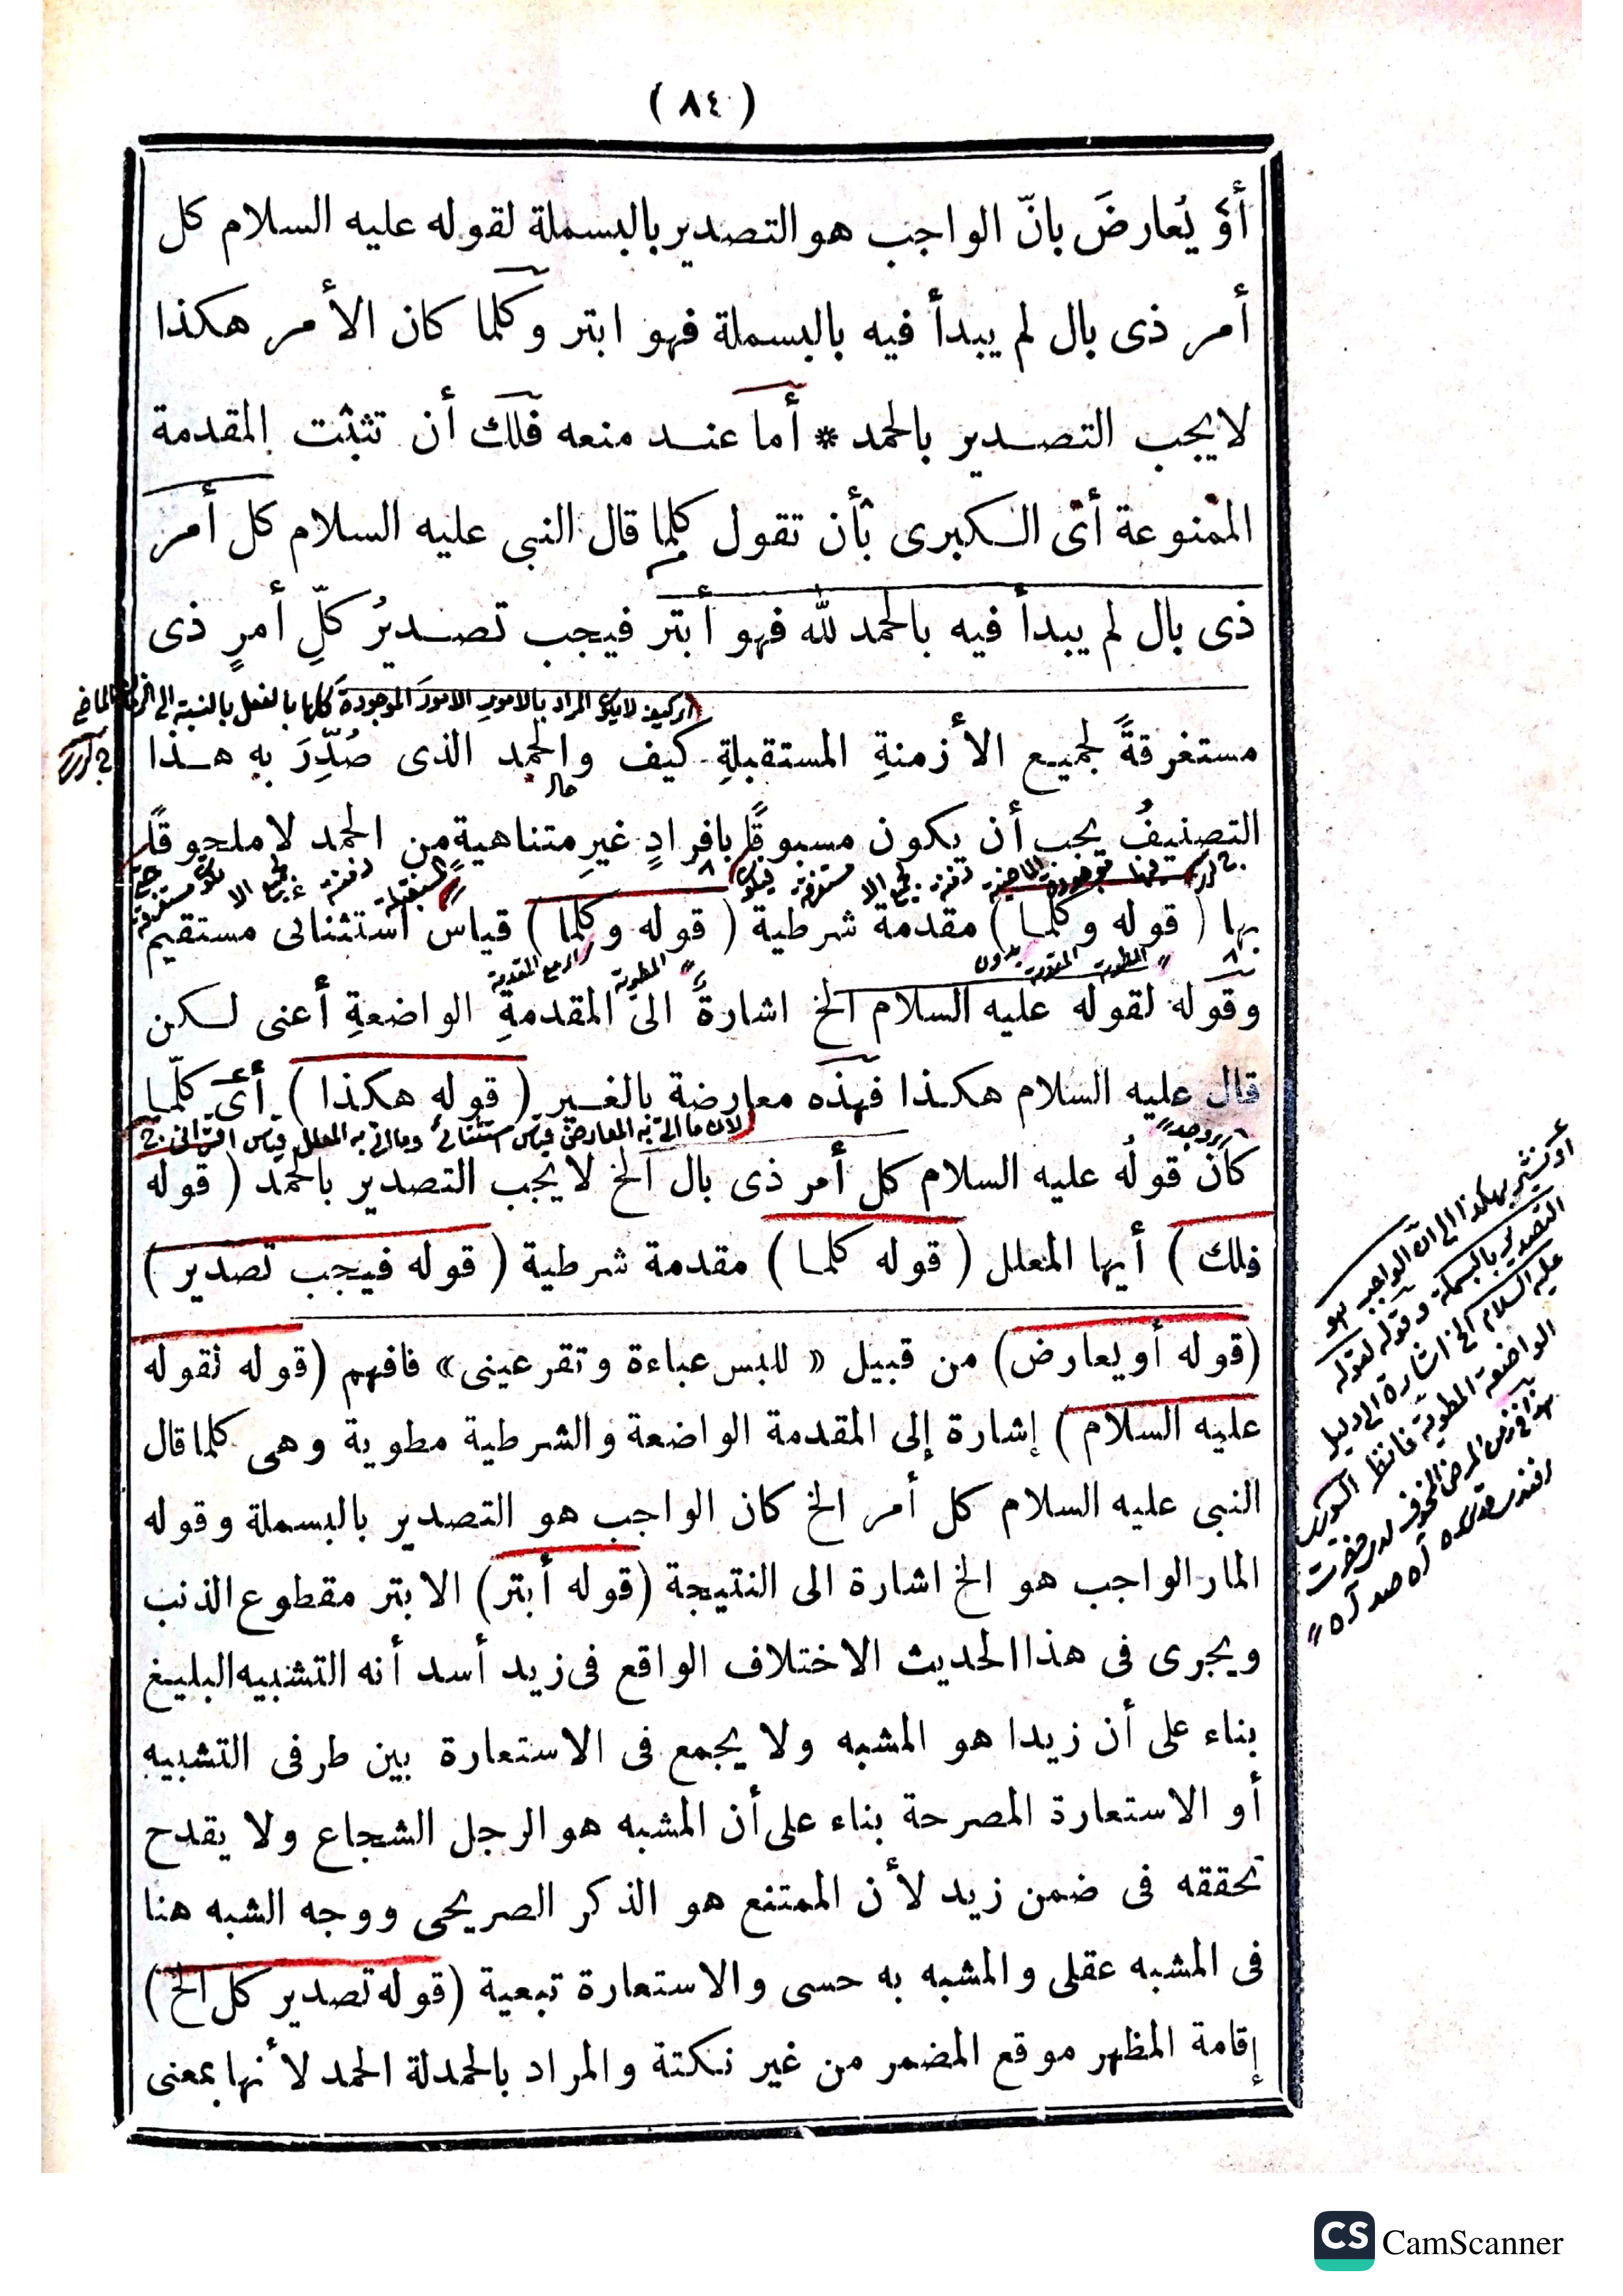 (٨٤)
أوْ يُعارضَ بانّ الواجب هو التصدير بالبسملة لقوله عليه السلام كل
أمر ذى بال لم يبدأ فيه بالبسملة فهو ابتر وكلما كان الأمر هكذا
لايجب التصدير بالحمد * أما عند منعه فلك أن تثبت المقدمة
الممنوعة أى الكبرى بأن تقول كلما قال النبى عليه السلام كل أمر
ذى بال لم يبدأ فيه بالحمد لله فهو أبتر فيجب تصديرُ كلِّ أمرٍ ذى
مستغرقةً لجميع الأزمنةِ المستقبلةِ كيف والحمد الذى صُدِّرَ به هذا
حال
التصنيفُ يجب أن يكون مسبوقًا بافرادٍ غيرِ متناهيةٍ من الحمد لا ملحوقًا
بها (قوله وكلما) مقدمة شرطية (قوله وكلما) قياس استثنائى مستقيم
وقوله لقوله عليه السلام الخ اشارةً الى المقدمةِ الواضعةِ أعنى لكن
قال عليه السلام هكذا فهذه معارضة بالغير (قوله هكذا) أى كلّما
لان ما اتى به المعارض قياس استثنائى وما اتى به المعلل قياس اقترانى
كان قولُه عليه السلام كل أمر ذى بال الخ لايجب التصدير بالحمد (قوله
فلك) أيها المعلل (قوله كلما) مقدمة شرطية (قوله فيجب تصدير)
(قوله أو يعارض) من قبيل « للبس عباءة وتقر عينى» فافهم (قوله لقوله
عليه السلام) إشارة إلى المقدمة الواضعة والشرطية مطوية وهى كلما قال
النبى عليه السلام كل أمر الخ كان الواجب هو التصدير بالبسملة وقوله
المار الواجب هو الخ اشارة الى النتيجة (قوله أبتر) الابتر مقطوع الذنب
ويجرى فى هذا الحديث الاختلاف الواقع فى زيد أسد أنه التشبيه البليغ
بناء على أن زيدا هو المشبه ولا يجمع فى الاستعارة بين طرفى التشبيه
أو الاستعارة المصرحة بناء على أن المشبه هو الرجل الشجاع ولا يقدح
تحققه فى ضمن زيد لأن الممتنع هو الذكر الصريحى ووجه الشبه هنا
فى المشبه عقلى والمشبه به حسى والاستعارة تبعية (قوله تصدير كل الخ)
إقامة المظهر موقع المضمر من غير نكتة والمراد بالحمدلة الحمد لأنها بمعنى
الواجب هو
التصدير بالبسملة وقوله لقوله
عليه السلام الخ اشارة الى دليل
الواضعة المطوية
CS CamScanner